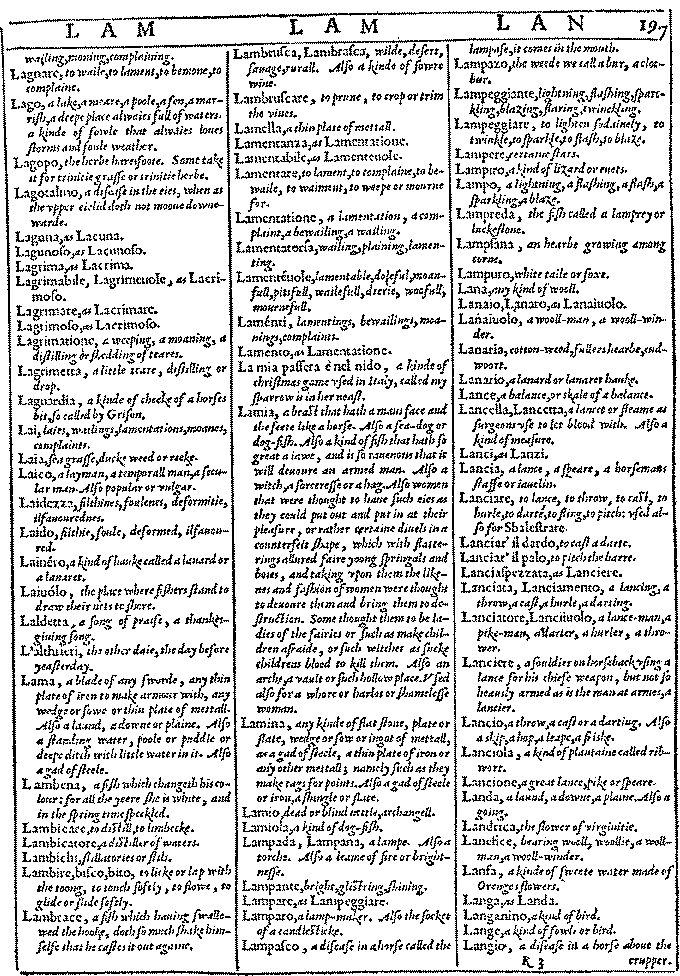 L A M
L A M
L A N
197
wailing, moning, complaining.
Lagnare, to waile, to lament, to bemone, to
complaine.
Lago, a lake, a meare, a poole, a fen, a mar-
rish, a deepe place alwaies full of waters.
a kinde of fowle that alwaies loues
storms and foule weather.
Lagopo, the herbe haresfoote. Some take
it for trinitie grasse or trinitie herbe.
Lagotalmo, a disease in the eies, when as
the vpper eielid doth not mooue downe-
warde.
Lagana, as Lacuna.
Lagunoso, as Lacunoso.
Lagrima, as Lacrima.
Lagrimabile, Lagrimeuole, as Lacri-
moso.
Lagrimare, as Lacrimare.
Lagrimoso, as Lacrimoso.
Lagrimatione, a weeping, a moaning, a
distilling or shedding of teares.
Lagrimetta, a little teare, distilling or
drop.
Laguardia, a kinde of cheeke of a horses
bit, so called by Grison.
Lai, laies, wailings, lamentations, moanes,
complaints.
Laia, sea grasse, ducke weed or reeke.
Laico, a layman, a temporall man, a secu-
lar man. Also popular or vulgar.
Laidezza, filthines, foulenes, deformitie,
ilfauourednes.
Laido, filthie, foule, deformed, ilfauou-
red.
Lainéro, a kind of hauke called a lanard or
a lanaret.
Laiuólo, the place where fishers stand to
draw their nets to shore.
Laldetta, a song of praise, a thankes-
giuing song.
L'althieri, the other daie, the day before
yeasterday.
Lama, a blade of any sworde, any thin
plate of iron to make armour with, any
wedge or sowe or thin plate of mettall.
Also a laund, a downe or plaine. Also
a standing water, poole or puddle or
deepe ditch with little water in it. Also
a gad of steele.
Lambena, a fish which changeth his co-
lour: for all the yeere she is white, and
in the spring time speckled.
Lambicare, to distill, to limbecke.
Lambicatore, a distiller of waters.
Lambichi, stillatories or stils.
Lambire, bisco, bito, to licke or lap with
the toong, to touch softly, to flowe, to
glide or slide softly.
Lambrace, a fish which hauing swallo-
wed the hooke, doth so much shake him-
selfe that he castes it out againe.
Lambrusca, Lambrasca, wilde, desert,
sauage, rurall. Also a kinde of sowre
wine.
Lambruscare, to prune, to crop or trim
the vines.
Lamella, a thin plate of mettall.
Lamentanza, as Lamentatione.
Lamentabile, as Lamenteuole.
Lamentare, to lament, to complaine, to be-
waile, to waiment, to weepe or mourne
for.
Lamentatione, a lamentation, a com-
plaint, a bewailing, a wailing.
Lamentatoria, wailing, plaining, lamen-
ting.
Lamentéuole, lamentable, doleful, moan-
full, pitifull, wailefull, drerie, woefull,
mournefull.
Laménti, lamentings, bewailings, moa-
nings, complaints.
Lamento, as Lamentatione.
La mia passera è nel nido, a kinde of
christmas game vsed in Italy, called my
sparrow is in her neast.
Lamia, a beast that hath a mans face and
the feete like a horse. Also a sea-dog or
dog-fish. Also a kind of fish that hath so
great a iawe, and is so rauenous that it
will deuoure an armed man. Also a
witch, a sorceresse or a hag. Also women
that were thought to haue such eies as
they could put out and put in at their
pleasure, or rather certaine diuels in a
counterfeit shape, which with flatte-
rings allured faire young springals and
boies, and taking vpon them the like-
nes and fashion of women were thought
to deuoure them and bring them to de-
struction. Some thought them to be la-
dies of the fairies or such as make chil-
dren afraide, or such witches as sucke
childrens blood to kill them. Also an
arche, a vault or such hollow place. Vsed
also for a whore or harlot or shamelesse
woman.
Lamina, any kinde of flat stone, plate or
slate, wedge or sow or ingot of mettall,
as a gad of steele, a thin plate of iron or
any other mettall; namely such as they
make tags for points. Also a gad of steele
or iron, a shingle or slate.
Lamio, dead or blind nettle, archangell.
Lamiola, a kind of dog-fish.
Lampada, Lampana, a lampe. Also a
torche. Also a leame of fire or bright-
nesse.
Lampante, bright, glistring, shining.
Lampare, as Lampeggiare.
Lamparo, a lamp-maker. Also the socket
of a candlesticke.
Lampasco, a disease in a horse called the
lampasse, it comes in the mouth.
Lampazo, the weede we call a bur, a clot-
bur.
Lampeggiante, lightning, flashing, sparc-
kling, blazing, flaring, twinckling.
Lampeggiare, to lighten sodainely, to
twinkle, to sparkle, to flash, to blaze.
Lampere, certaine stars.
Lampiro, a kind of lizard or euets.
Lampo, a lightning, a flashing, a flash, a
sparkling, a blaze.
Lampreda, the fish called a lamprey or
suckestone.
Lampsana, an hearbe growing among
corne.
Lampuro, white taile or foxe.
Lana, any kind of wooll.
Lanaio, Lanaro, as Lanaiuolo.
Lanaiuolo, a wooll-man, a wooll-win-
der.
Lanaria, cotton-weed, fullers hearbe, cud-
woort.
Lanario, a lanard or lanaret hauke.
Lance, a balance, or skale of a balance.
Lancella, Lancetta, a lancet or fleame as
surgeons vse to let blood with. Also a
kind of measure.
Lanci, as Lanzi.
Lancia, a lance, a speare, a horsemans
staffe or iauelin.
Lanciare, to lance, to throw, to cast, to
hurle, to darte, to fling, to pitch: vsed al-
so for Sbalestrare.
Lanciar' il dardo, to cast a darte.
Lanciar' il palo, to pitch the barre.
Lanciaspezzata, as Lanciere.
Lanciata, Lanciamento, a lancing, a
throw, a cast, a hurle, a darting.
Lanciatore, Lanciiuolo, a lance-man, a
pike-man, a darter, a hurler, a thro-
wer.
Lanciere, a souldier on horseback vsing a
lance for his chiefe weapon, but not so
heauily armed as is the man at armes, a
lancier.
Lancio, a throw, a cast or a darting. Also
a skip, a hop, a leape, a friske.
Lanciola, a kind of plantaine called rib-
wort.
Lancione, a great lance, pike or speare.
Landa, a laund, a downe, a plaine. Also a
going.
Landrica, the flower of virginitie.
Lanefice, bearing wooll, woollie, a wooll-
man, a wooll-winder.
Lanfa, a kinde of sweete water made of
Orenge flowers.
Langa, as Landa.
Langanino, a kind of bird.
Lange, a kind of fowle or bird.
Langio, a disease in a horse about the
R 3
crupper.